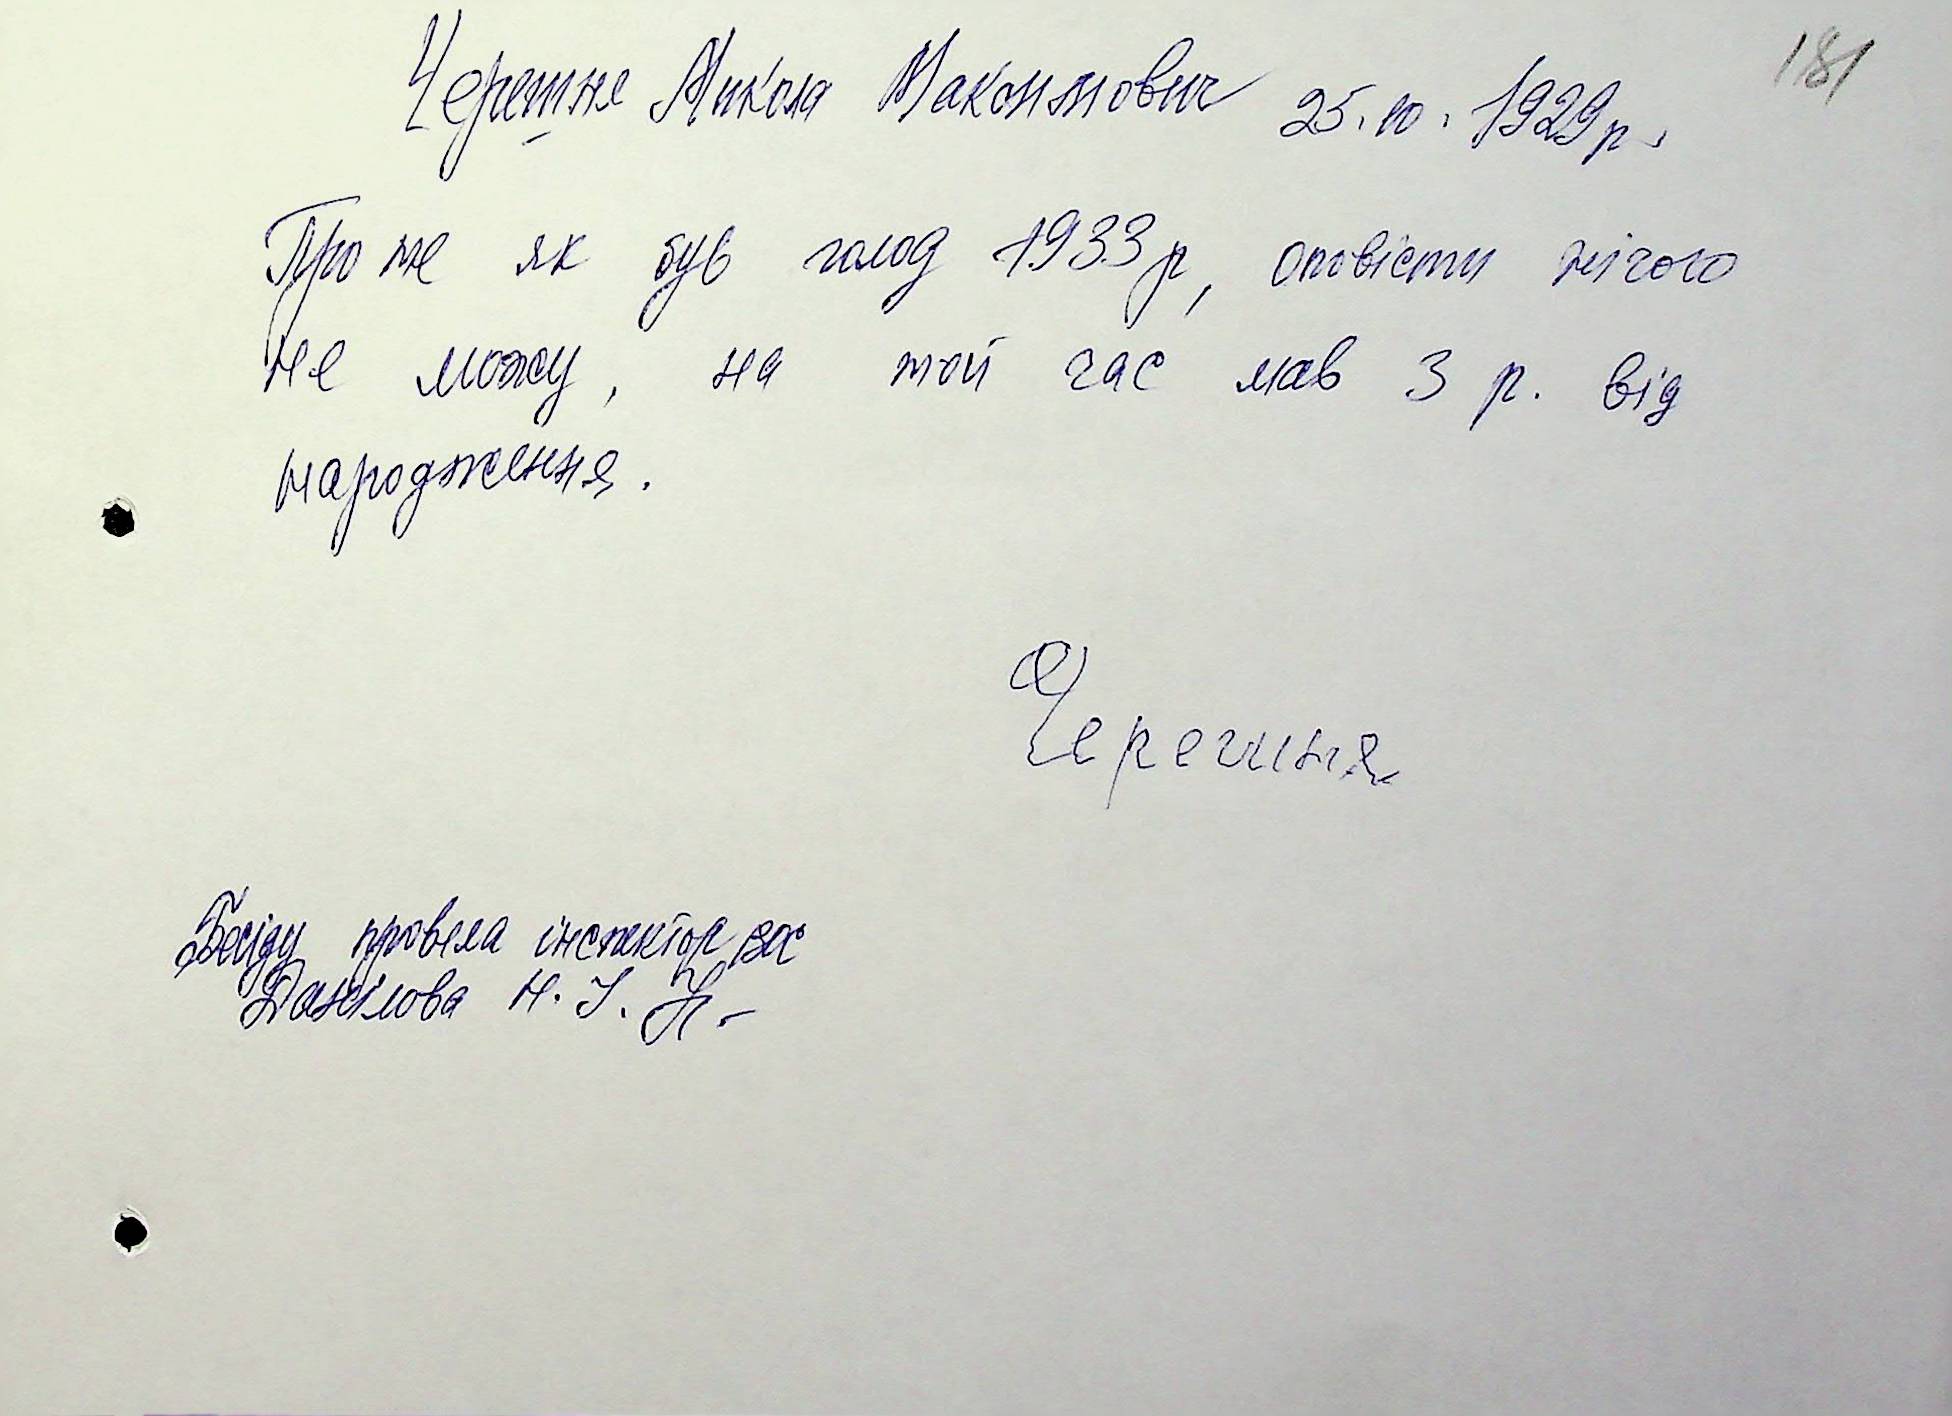 181
Черешня Микола Максимович 25.10.1929р.
Про те як був голод 1933р, оповісти нічого
не можу, на той час мав 3 р. від
народження.
Черешня
Бесіду провела інспектор ВОС
Данілова Н. І.